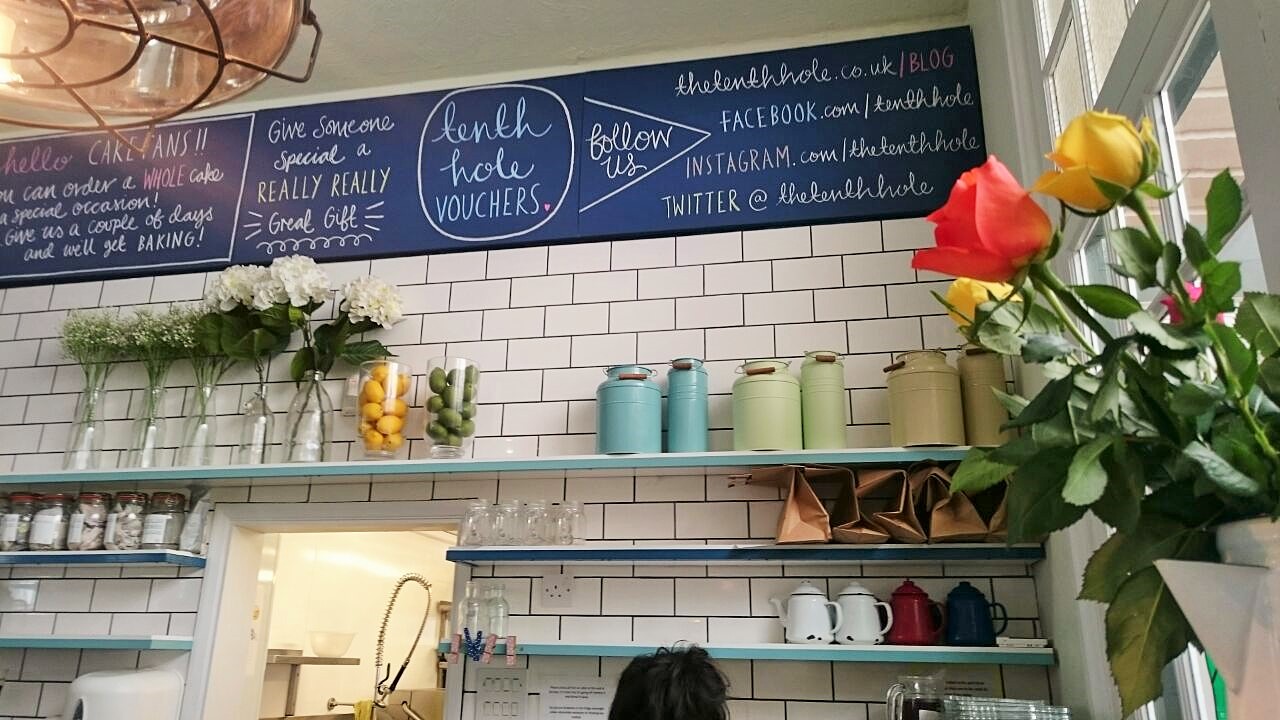 hello CAKE FANS!!
ou can order a WHOLE cake
a special occasion!
Give us a couple of days
and we'll get BAKING!
Give Someone
Special a
REALLY REALLY
Great Gift
tenth
hole
VOUCHERS
follow
us
thetenthhole.co.uk/BLOG
FACEBOOK.com/tenthhole
INSTAGRAM.com/thetenthhole
TWITTER @ thetenthhole